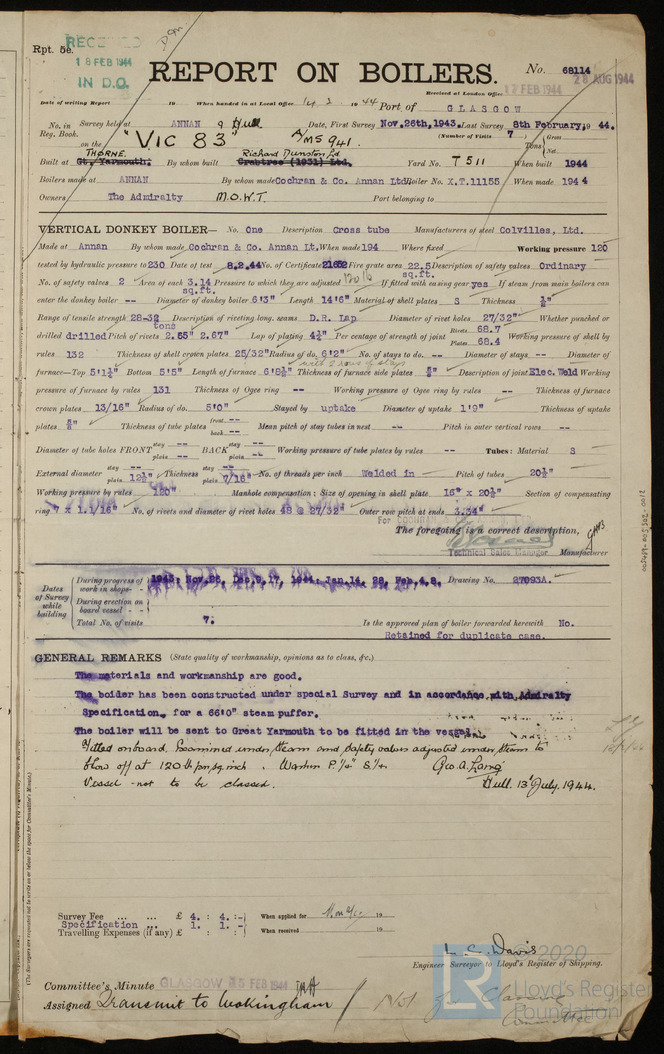 Rpt. 5e.
RECEIVED
18 FEB 1944
IN D.O.
REPORT ON BOILERS.
No. 68114
28 AUG 1944
Received at London Office 12 FEB 1944
Date of writing Report 19 When handed in at Local Office 14 2 1944 Port of GLASGOW
No. in Reg. Book. Survey held at ANNAN & Hull Date, First Survey Nov. 26th, 1943. Last Survey 8th February, 1944.
(Number of Visits 7)
on the "VIC 83" A/MS 941. Tons Gross Net
Built at THORNE Gt. Yarmouth. By whom built Richard Dunston Ld Crabtree (1931) Ltd. Yard No. T 511 When built 1944
Boilers made at ANNAN By whom made Cochran & Co. Annan Ltd. Boiler No. X.T.11155 When made 1944
Owners The Admiralty M.O.W.T. Port belonging to
VERTICAL DONKEY BOILER— No. One Description Cross tube Manufacturers of steel Colvilles, Ltd.
Made at Annan By whom made Cochran & Co. Annan Lt. When made 194 Where fixed Working pressure 120
tested by hydraulic pressure to 230 Date of test 8.2.44 No. of Certificate 21652 Fire grate area 22.5 sq.ft. Description of safety valves Ordinary
No. of safety valves 2 Area of each 3.14 sq.ft. Pressure to which they are adjusted 120 lb If fitted with easing gear yes If steam from main boilers can
enter the donkey boiler -- Diameter of donkey boiler 6'3" Length 14'6" Material of shell plates S Thickness ½"
Range of tensile strength 28-32 tons Description of riveting long. seams D.R. Lap Diameter of rivet holes 27/32" Whether punched or
drilled drilled Pitch of rivets 2.55" 2.67" Lap of plating 4¼" Per centage of strength of joint Rivets 68.7 Plates 68.4 Working pressure of shell by
rules 132 Thickness of shell crown plates 25/32" Radius of do. 6'2" No. of stays to do. -- Diameter of stays -- Diameter of
furnace—Top 5'1¼" Bottom 5'5" Length of furnace 6'8½" Thickness of furnace side plates Description of joint Elec. Weld Working
pressure of furnace by rules 131 Thickness of Ogee ring -- Working pressure of Ogee ring by rules -- Thickness of furnace
crown plates 13/16" Radius of do. 5'0" Stayed by uptake Diameter of uptake 1'9" Thickness of uptake
plates Thickness of tube plates front -- back -- Mean pitch of stay tubes in nest -- Pitch in outer vertical rows --
Diameter of tube holes FRONT stay -- plain -- BACK stay -- plain -- Working pressure of tube plates by rules -- Tubes: Material S
External diameter stay -- plain 12½" Thickness stay -- plain 7/16" No. of threads per inch Welded in Pitch of tubes 20½"
Working pressure by rules 120" Manhole compensation: Size of opening in shell plate 16" x 20½" Section of compensating
ring 7 x 1.1/16" No. of rivets and diameter of rivet holes 48 @ 27/32" Outer row pitch at ends 3.34"
For COCHRAN & CO. ANNAN, LTD.
The foregoing is a correct description,
Technical Sales Manager Manufacturer
Dates of Survey while building
During progress of work in shops - - 1943: Nov. 26, Dec. 9, 17, 1944: Jan. 14, 28, Feb. 4, 8. Drawing No. 27093A.
During erection on board vessel - -
Total No. of visits 7. Is the approved plan of boiler forwarded herewith No.
Retained for duplicate case.
GENERAL REMARKS (State quality of workmanship, opinions as to class, &c.)
The materials and workmanship are good.
The boiler has been constructed under special Survey and in accordance with Admiralty
Specification, for a 66'0" steam puffer.
The boiler will be sent to Great Yarmouth to be fitted in the vessel.
Fitted onboard, Examined under steam and safety valves adjusted under steam to
blow off at 120 lb per sq inch. Washers Geo. A. Laing
Vessel not to be classed. Hull. 13 July. 1944.
Survey Fee ... ... £ 4. : 4. :- When applied for 19
Specification ... 1. 1. -
Travelling Expenses (if any) £ : : When received 19
L. C. Davis
Engineer Surveyor to Lloyd's Register of Shipping.
Committee's Minute GLASGOW 15 FEB 1944
Assigned Transmit to Wokingham
© 2020
Lloyd's Register
Foundation